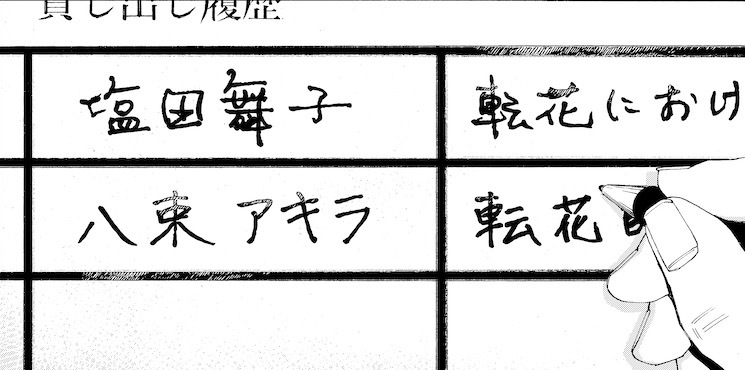 貸し出し履歴
塩田舞子 転花におけ
八束アキラ 転花